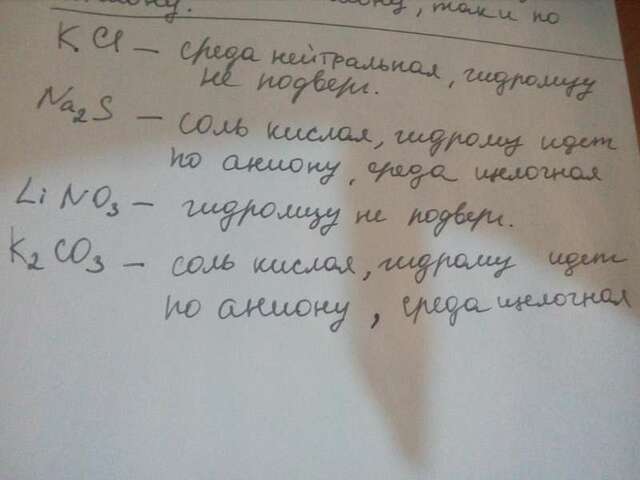 аниону, так и по
KCl – среда нейтральная, гидролизу
не подверг.
Na2S – соль кислая, гидролиз идет
по аниону, среда щелочная
LiNO3 – гидролизу не подверг.
K2CO3 – соль кислая, гидролиз идет
по аниону, среда щелочная